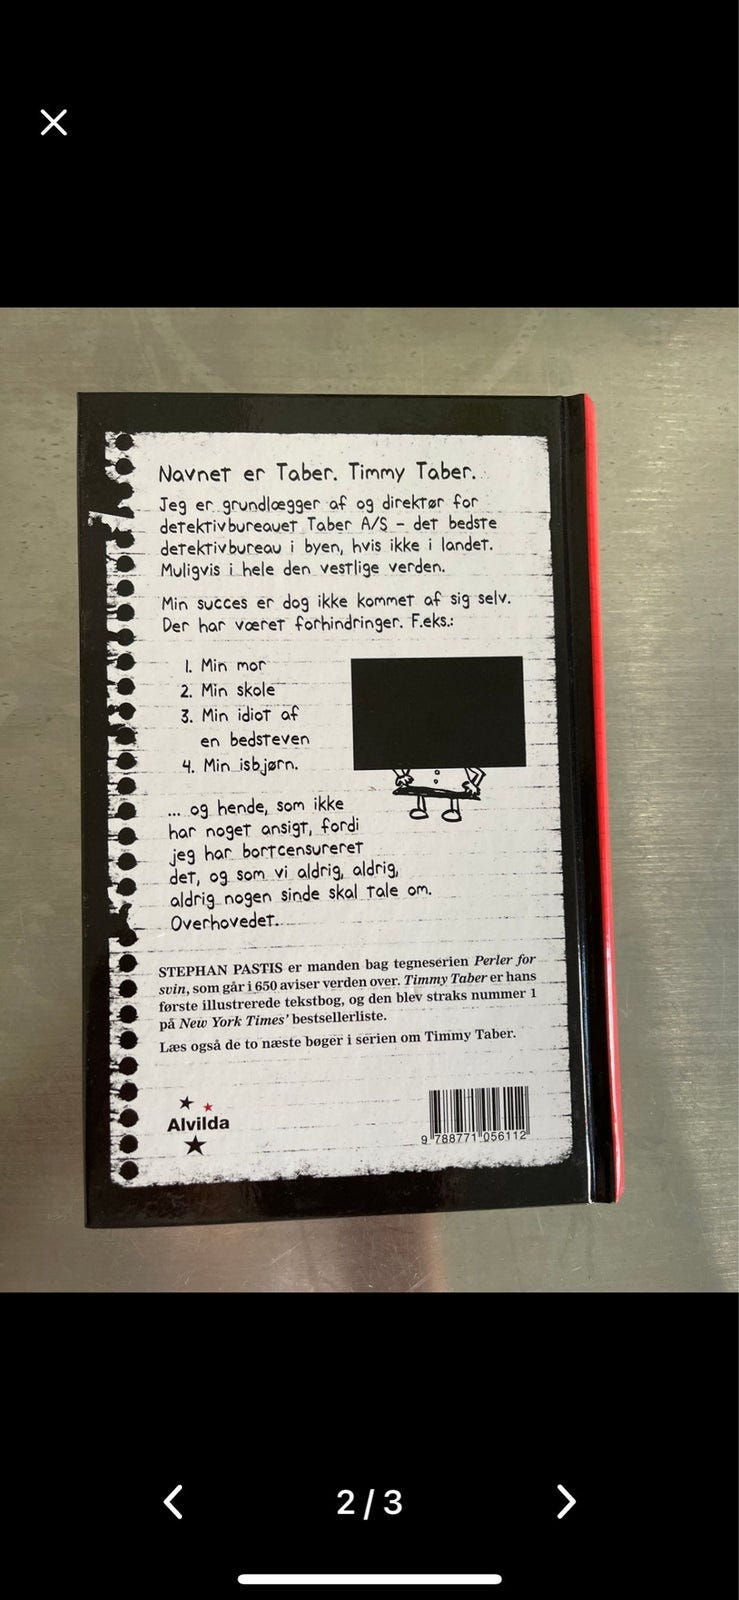 Navnet er Taber. Timmy Taber.
Jeg er grundlægger af og direktør for
detektivbureauet Taber A/S – det bedste
detektivbureau i byen, hvis ikke i landet.
Muligvis i hele den vestlige verden.
Min succes er dog ikke kommet af sig selv.
Der har været forhindringer. F.eks.:
1. Min mor
2. Min skole
3. Min idiot af
en bedsteven
4. Min isbjørn.
... og hende, som ikke
har noget ansigt, fordi
jeg har bortcensureret
det, og som vi aldrig, aldrig,
aldrig nogen sinde skal tale om.
Overhovedet.
STEPHAN PASTIS er manden bag tegneserien Perler for
svin, som går i 650 aviser verden over. Timmy Taber er hans
første illustrerede tekstbog, og den blev straks nummer 1
på New York Times' bestsellerliste.
Læs også de to næste bøger i serien om Timmy Taber.
Alvilda
9 788771 056112
2 / 3